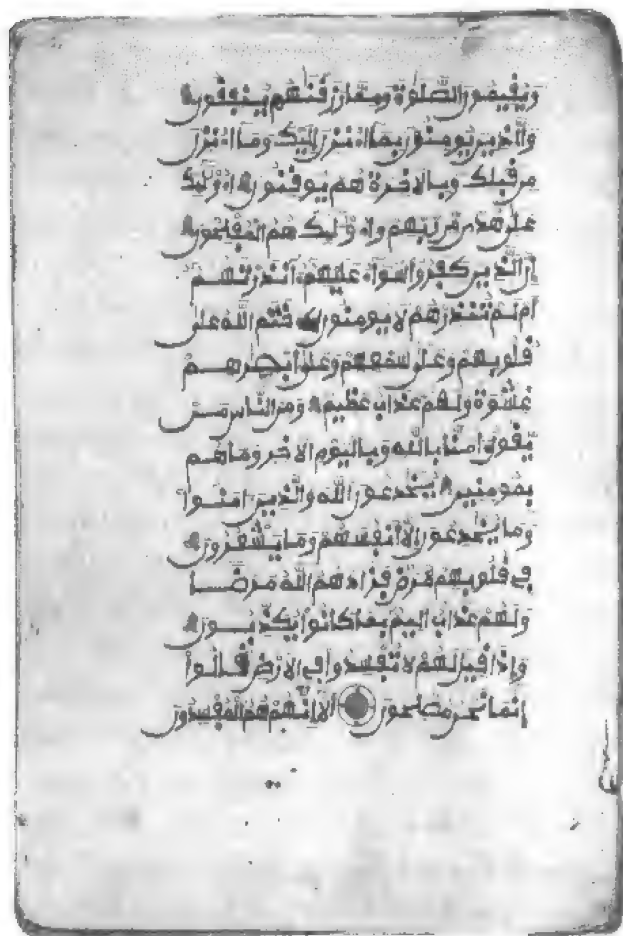 وَيُقِيمُونَ الصَّلَوٰةَ وَمِمَّا رَزَقْنَٰهُمْ يُنفِقُونَ
وَالَّذِينَ يُومِنُونَ بِمَا أُنزِلَ إِلَيْكَ وَمَا أُنزِلَ
مِن قَبْلِكَ وَبِالَاخِرَةِ هُمْ يُوقِنُونَ أُوْلَٰئِكَ
عَلَىٰ هُدًى مِّن رَّبِّهِمْ وَأُوْلَٰئِكَ هُمُ الْمُفْلِحُونَ
إِنَّ الَّذِينَ كَفَرُوا سَوَآءٌ عَلَيْهِمُ ءَآنذَرْتَهُمُ
أَمْ لَمْ تُنذِرْهُمْ لَا يُومِنُونَ خَتَمَ اللَّهُ عَلَىٰ
قُلُوبِهِمْ وَعَلَىٰ سَمْعِهِمْ وَعَلَىٰ أَبْصَٰرِهِمْ
غِشَٰوَةٌ وَلَهُمْ عَذَابٌ عَظِيمٌ وَمِنَ النَّاسِ مَن
يَّقُولُ ءَامَنَّا بِاللَّهِ وَبِالْيَوْمِ الَاخِرِ وَمَا هُم
بِمُومِنِينَ يُخَٰدِعُونَ اللَّهَ وَالَّذِينَ ءَامَنُوا
وَمَا يُخَٰدِعُونَ إِلَّا أَنفُسَهُمْ وَمَا يَشْعُرُونَ
فِي قُلُوبِهِم مَّرَضٌ فَزَادَهُمُ اللَّهُ مَرَضًا
وَلَهُمْ عَذَابٌ أَلِيمٌ بِمَا كَانُوا يُكَذِّبُونَ
وَإِذَا قِيلَ لَهُمْ لَا تُفْسِدُوا فِي الَارْضِ قَالُوا
إِنَّمَا نَحْنُ مُصْلِحُونَ أَلَا إِنَّهُمْ هُمُ الْمُفْسِدُونَ